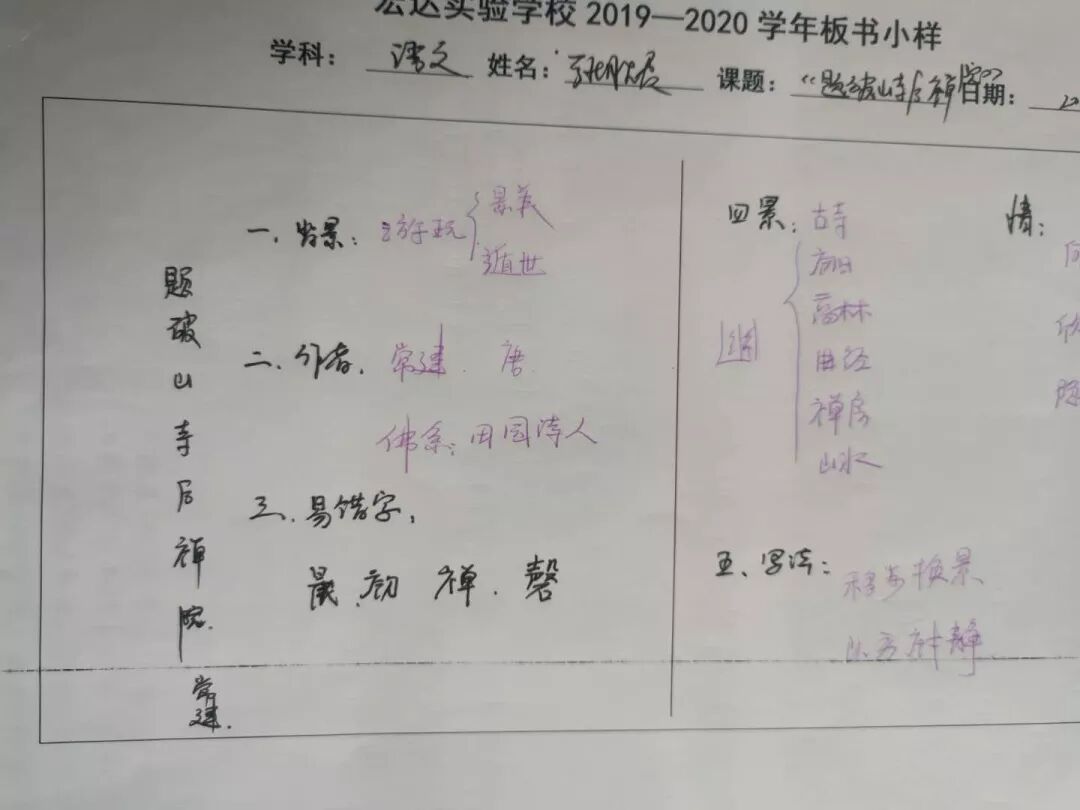 宏达实验学校2019—2020学年板书小样
学科：语文 姓名： 课题：“题破山寺后禅院” 日期：20
题破山寺后禅院.
常建.
一. 背景：游玩
景美
遁世
二. 作者. 常建. 唐.
佛系；田园诗人
三. 易错字，
晨. 初 禅. 磬
四景：古寺
高林
曲径
禅房
山水
情：
五、写法：移步换景
以动衬静